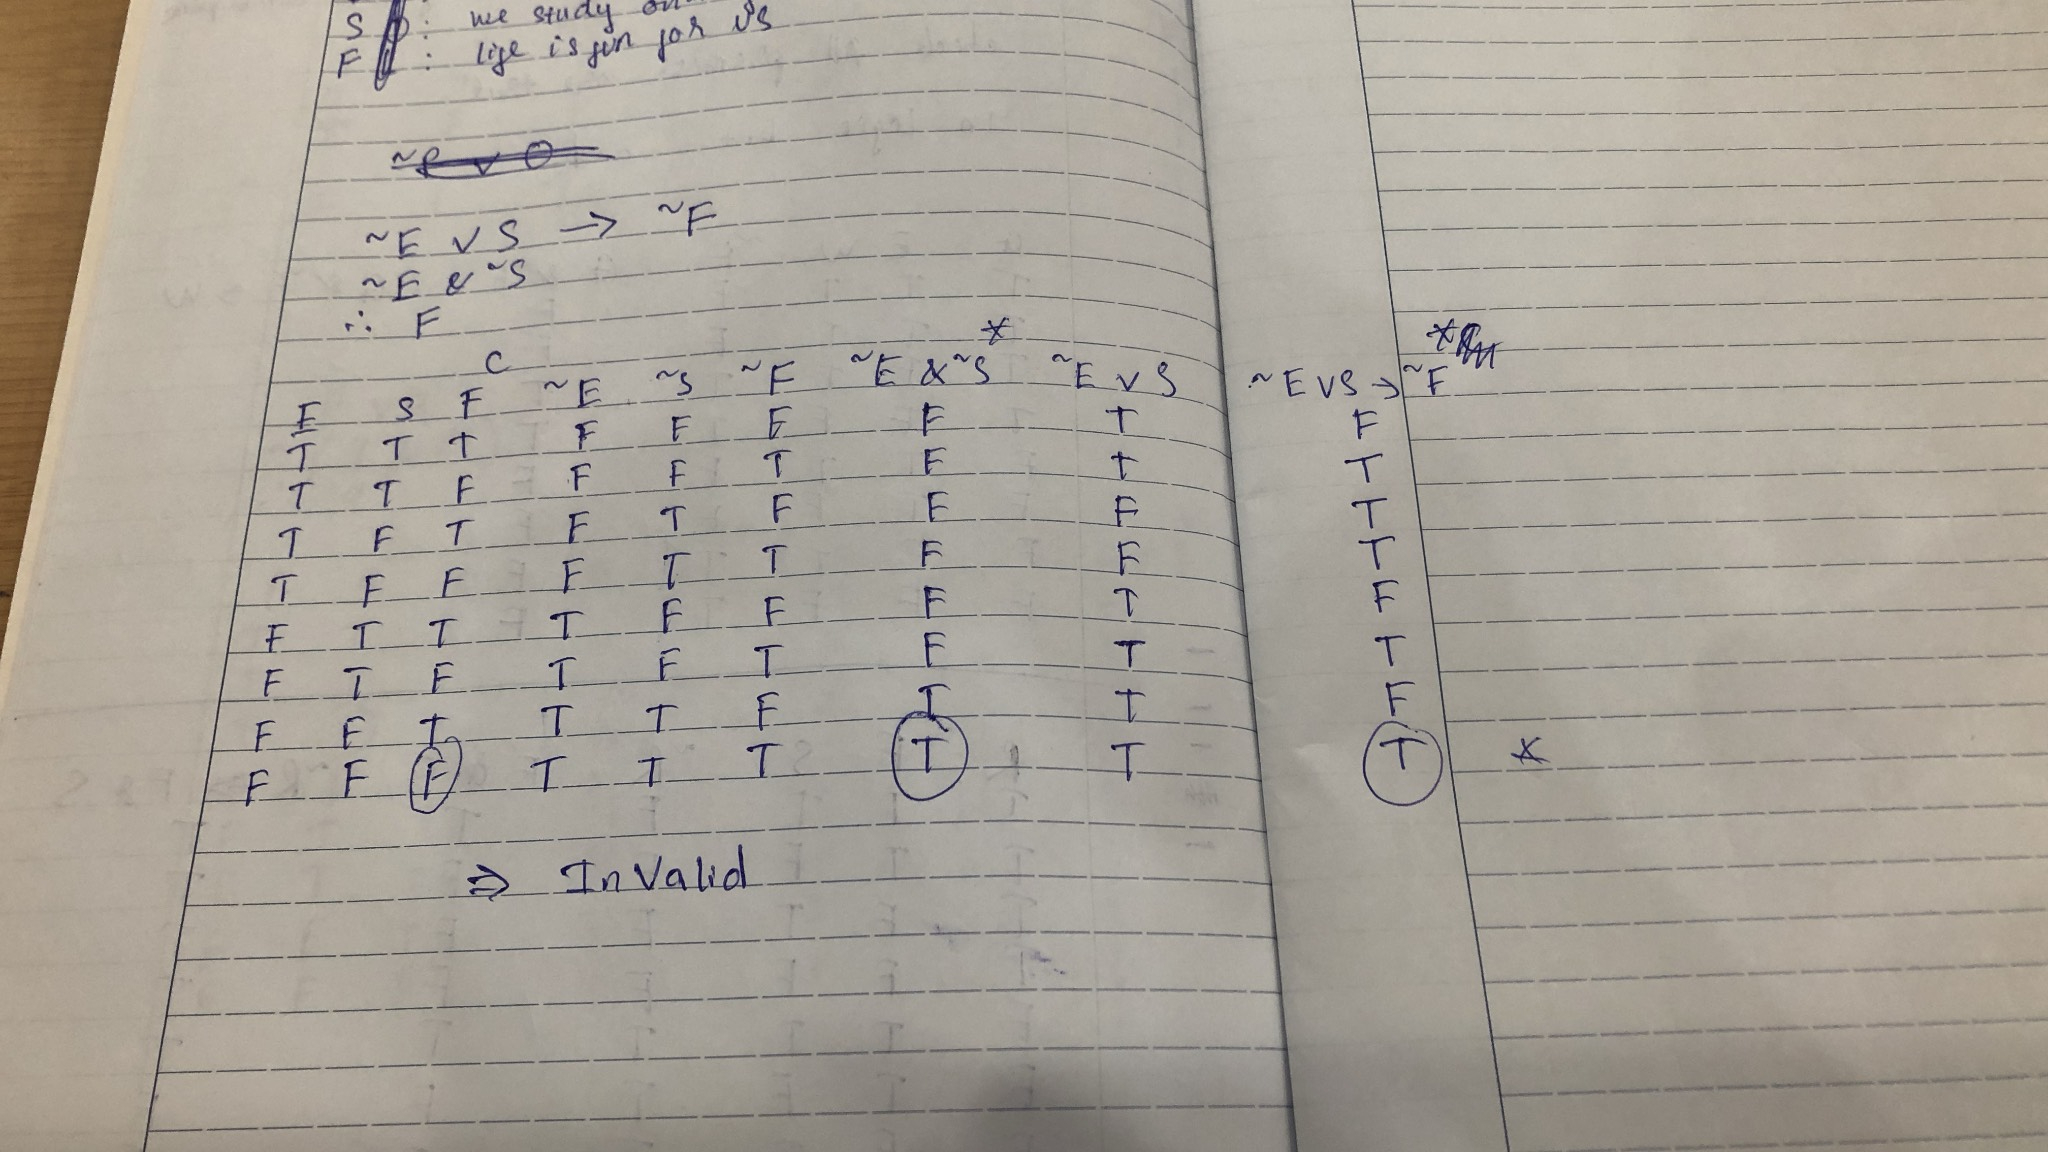 S : we study
F : lige is fun for us
~E v S → ~F
~E & ~S
∴ F
C * *
E S F ~E ~S ~F ~E & ~S ~E v S ~E v S → ~F
T T T F F F F T F
T T F F F T F T T
T F T F T F F F T
T F F F T T F F T
F T T T F F F T F
F T F T F T F T T
F F T T T F T T F
F F F T T T T T T *
⇒ InValid